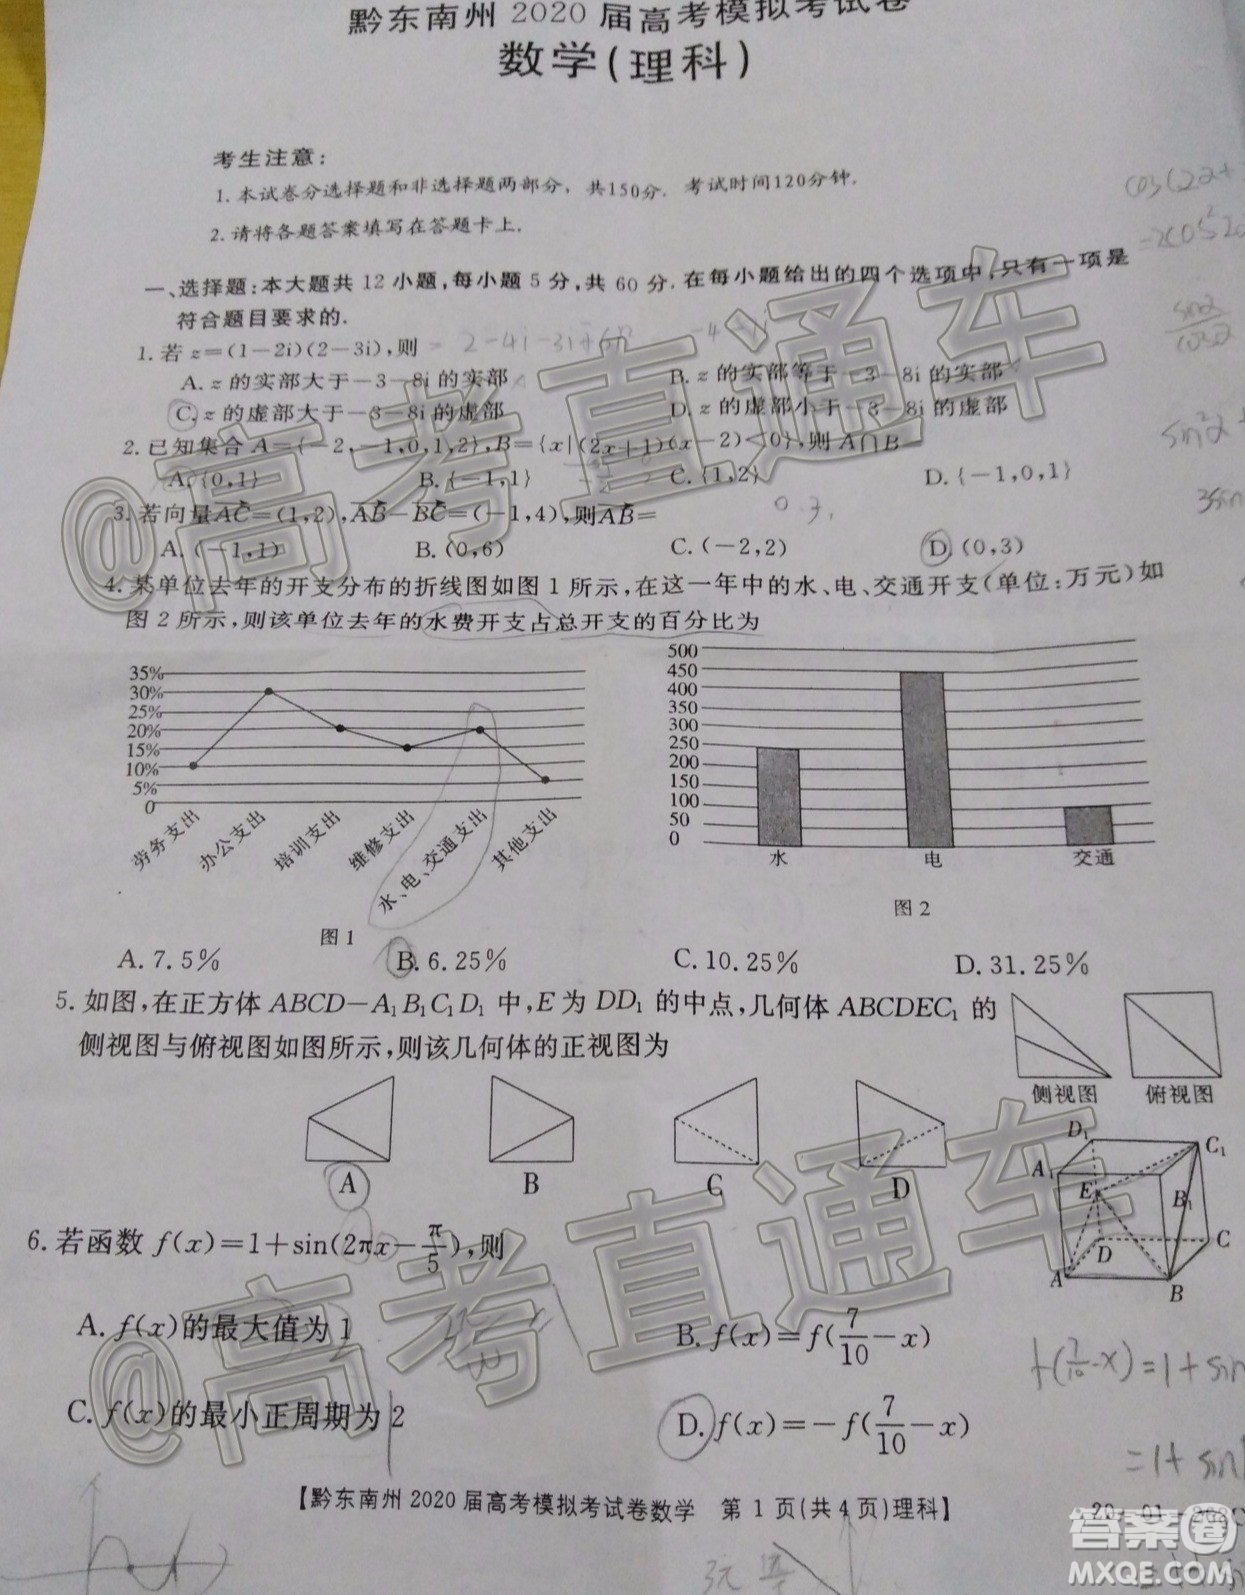 黔东南州 2020 届高考模拟考试卷
数学(理科)
考生注意:
1. 本试卷分选择题和非选择题两部分，共150分. 考试时间120分钟.
2. 请将各题答案填写在答题卡上.
一、选择题:本大题共 12 小题,每小题 5 分,共 60 分. 在每小题给出的四个选项中,只有一项是
符合题目要求的.
1. 若 z=(1-2i)(2-3i),则
A. z 的实部大于-3-8i 的实部
B. z 的实部等于-3-8i 的实部
C. z 的虚部大于-3-8i 的虚部
D. z 的虚部小于-3-8i 的虚部
2. 已知集合 A={-2,-1,0,1,2},B={x|(2x+1)(x-2)<0},则 A∩B=
A. {0,1}
B. {-1,1}
C. {1,2}
D. {-1,0,1}
3. 若向量AC=(1,2),AB-BC=(-1,4),则AB=
0.3,
A. (-1,1)
B. (0,6)
C. (-2,2)
D. (0,3)
4. 某单位去年的开支分布的折线图如图 1 所示,在这一年中的水、电、交通开支(单位:万元)如
图 2 所示,则该单位去年的水费开支占总开支的百分比为
35%
30%
25%
20%
15%
10%
5%
0
劳务支出
办公支出
培训支出
维修支出
水、电、交通支出
其他支出
图 1
500
450
400
350
300
250
200
150
100
50
0
水
电
交通
图 2
A. 7.5%
B. 6.25%
C. 10.25%
D. 31.25%
5. 如图,在正方体 ABCD-A₁B₁C₁D₁ 中,E 为 DD₁ 的中点,几何体 ABCDEC₁ 的
侧视图与俯视图如图所示,则该几何体的正视图为
侧视图
俯视图
A
B
C
D
D₁
C₁
A₁
B₁
E
D
C
A
B
6. 若函数 f(x)=1+sin(2πx-π/5),则
A. f(x)的最大值为 1
B. f(x)=f(7/10-x)
C. f(x)的最小正周期为 2
D. f(x)=-f(7/10-x)
【黔东南州 2020 届高考模拟考试卷数学 第 1 页(共 4 页)理科】
@高考直通车
@高考直通车
答案圈
MXQE.COM